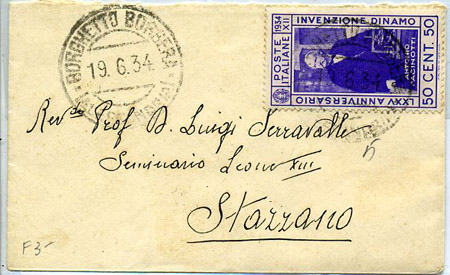 BORGHETTO BORBERA
19.6.34
POSTE ITALIANE
1934 XII
INVENZIONE DINAMO
ANTONIO PACINOTTI
LXXV ANNIVERSARIO
50 CENT. 50
Rev.do Prof. D. Luigi Serravalle
Seminario Leone XIII
Stazzano
F3-